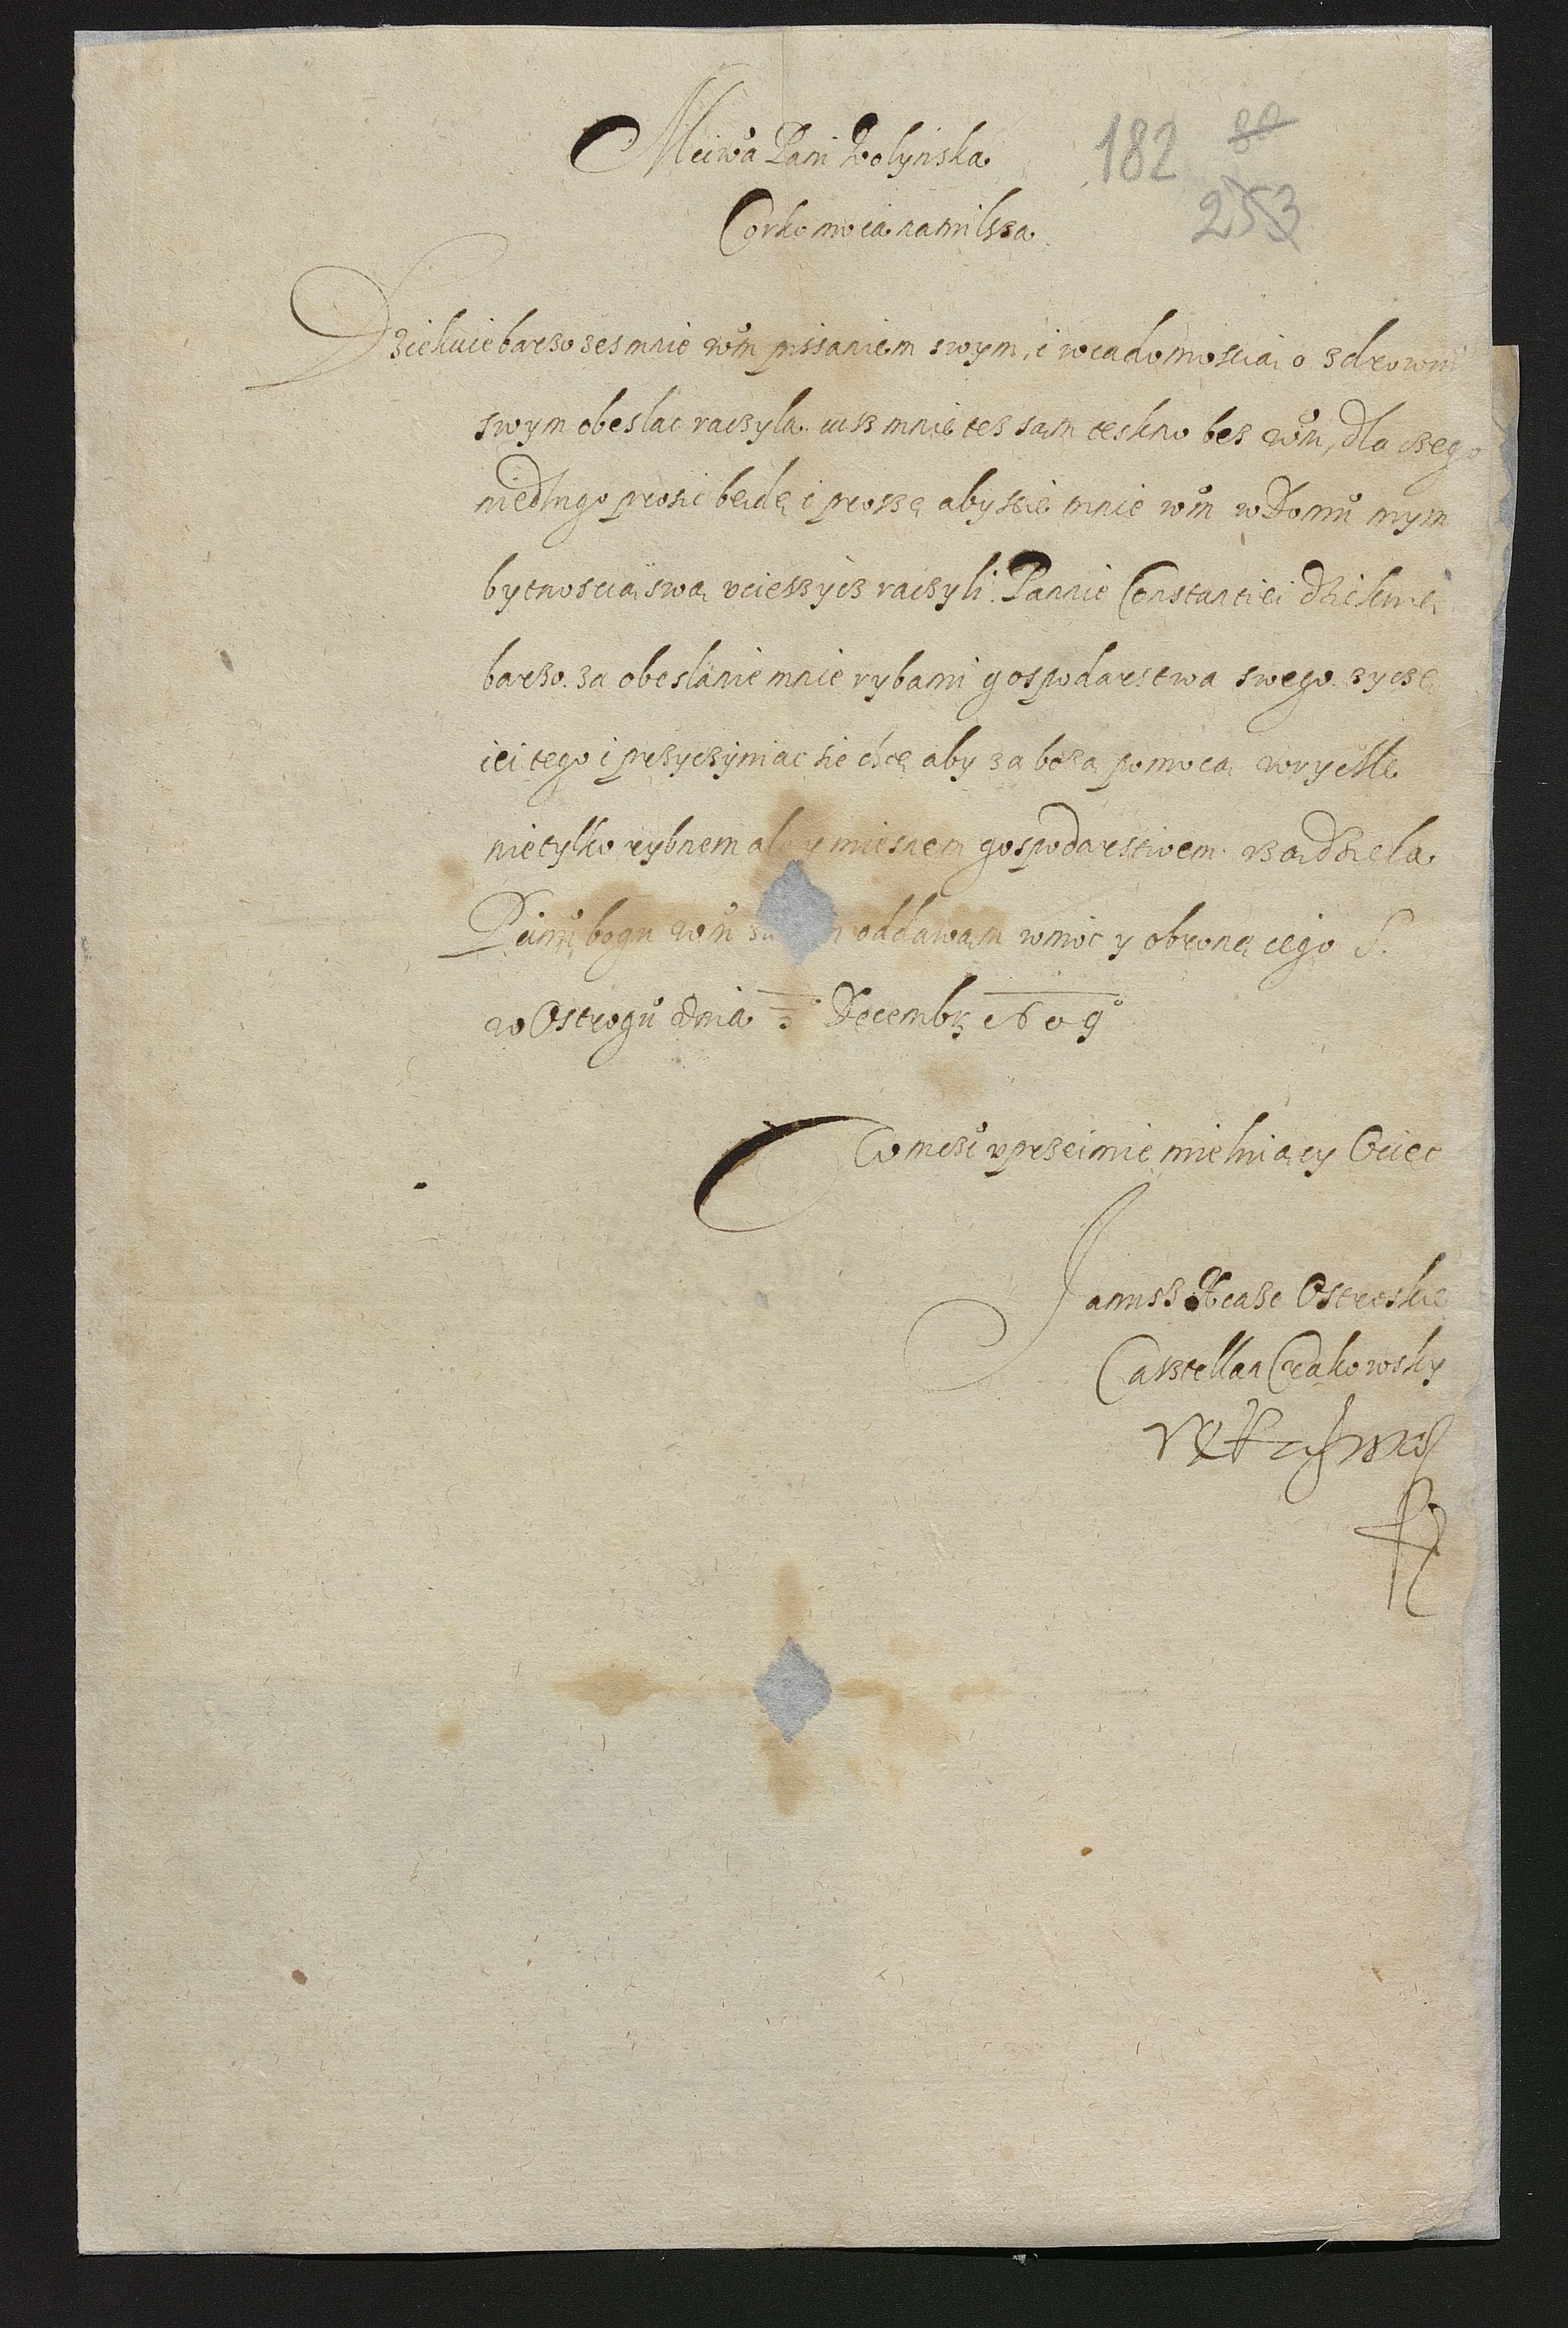 Mciwa Pani Wolynska
182 80
Corko moia namilsza
253
Dziekuie barzo zes mnie wm pissaniem swym, i wiadomoscią o zdrowiu
swym obeslac raczyla. iusz mnie tez sam teskno bez wm, dla czego
niedlugo prosic będę i proszę abyscie mnie wm w Domu mym
bytnoscią swą vcieszycz raczyli. Pannie Constantiei dziekuię
barzo. za obeslanie mnie rybami gospodarstwa swego. zyczę
iei tego i przyczyniac sie chcę aby za bozą pomocą wrychle
nie tylko rybnem ale y miesnem gospodarstwem rządziela
Panu bogu wm oddawam w moc y obronę iego S.
w Ostrogu dnia 3 Decembr 1609
Wmci vprzeimie mieluiący Ociec
Janusz Xiaze Ostroskie
Casztellan Crakowsky
ręką swą